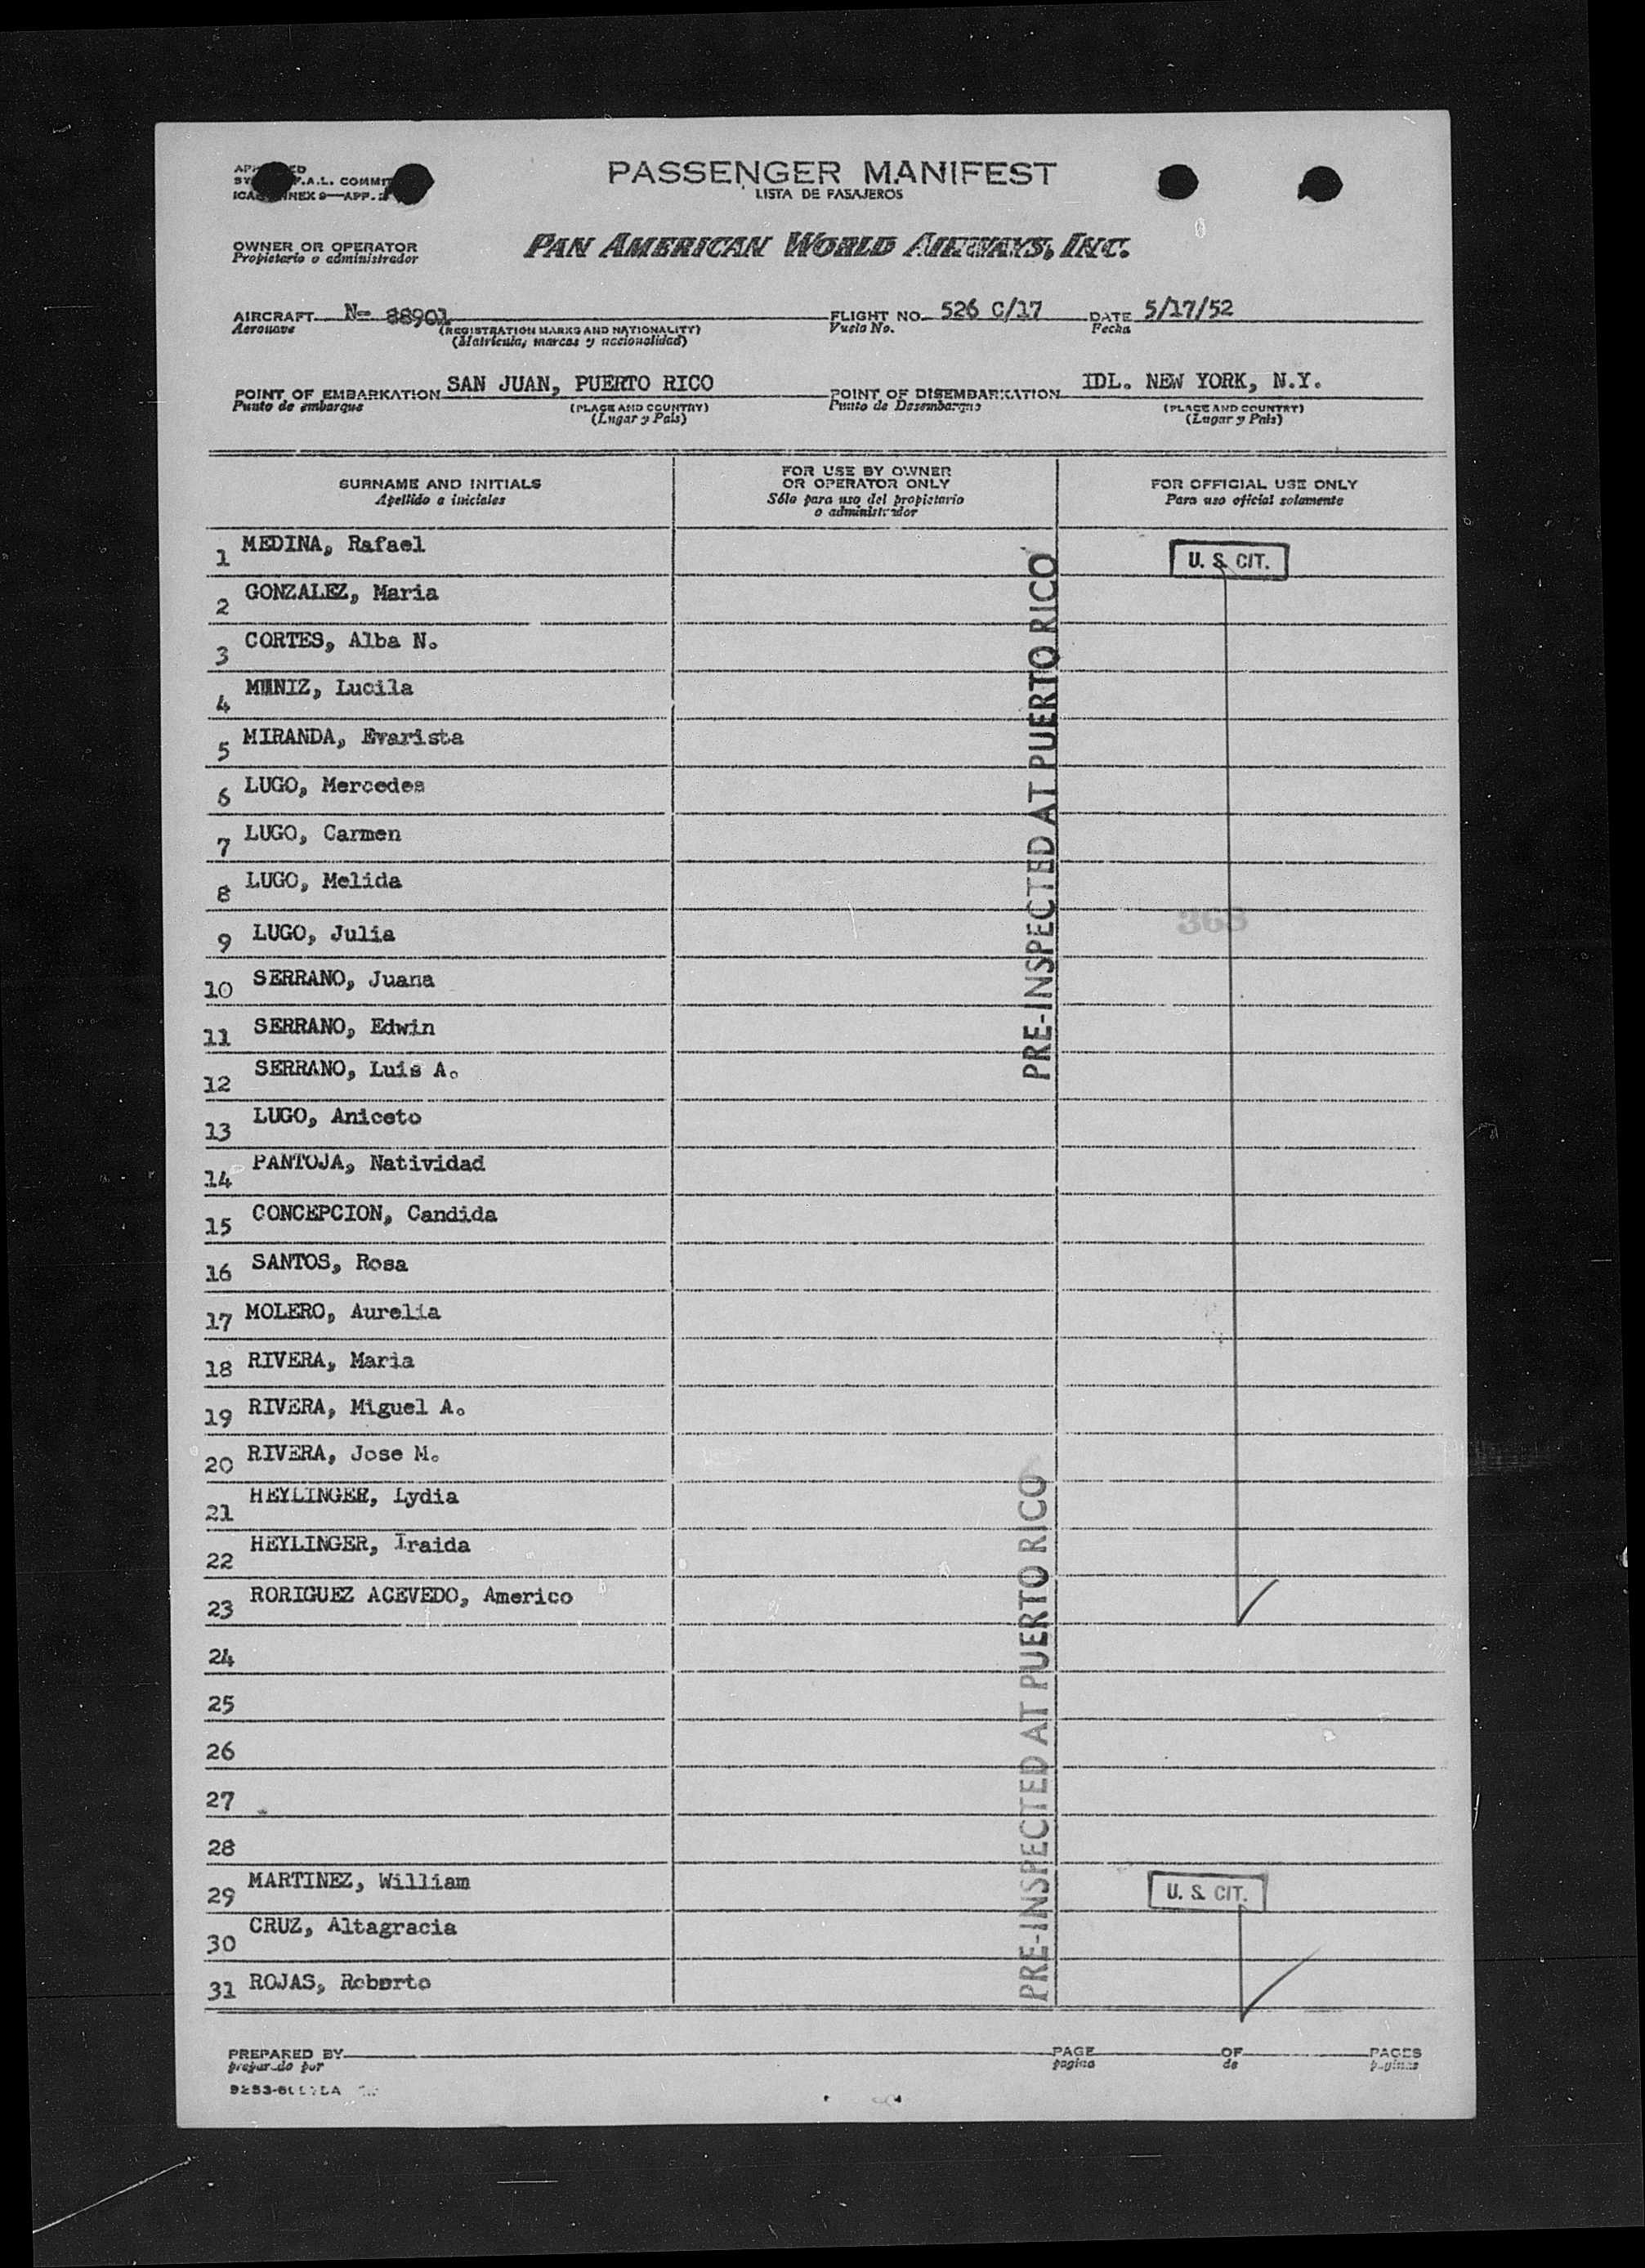 PASSENGER MANIFEST
LISTA DE PASAJEROS
F.A.L.
9—APP.
OWNER OR OPERATOR
Propietario o administrador
PAN AMERICAN WORLD AIRWAYS, INC.
AIRCRAFT N- 88901 FLIGHT NO. 526 C/17 DATE 5/17/52
Aeronave (REGISTRATION MARKS AND NATIONALITY) Vuelo No. Fecha
(Matricula, marcas y nacionalidad)
POINT OF EMBARKATION SAN JUAN, PUERTO RICO POINT OF DISEMBARKATION IDL. NEW YORK, N.Y.
Punto de embarque (PLACE AND COUNTRY) Punto de Desembarque (PLACE AND COUNTRY)
(Lugar y País) (Lugar y País)
SURNAME AND INITIALS
Apellido a iniciales
FOR USE BY OWNER
OR OPERATOR ONLY
Sólo para uso del propietario
o administrador
FOR OFFICIAL USE ONLY
Para uso oficial solamente
1 MEDINA, Rafael U. S. CIT.
2 GONZALEZ, Maria
3 CORTES, Alba N.
4 MUNIZ, Lucila
5 MIRANDA, Evarista
6 LUGO, Mercedes
7 LUGO, Carmen
8 LUGO, Melida
368
9 LUGO, Julia
10 SERRANO, Juana
11 SERRANO, Edwin
12 SERRANO, Luis A.
PRE-INSPECTED AT PUERTO RICO
13 LUGO, Aniceto
14 PANTOJA, Natividad
15 CONCEPCION, Candida
16 SANTOS, Rosa
17 MOLERO, Aurelia
18 RIVERA, Maria
19 RIVERA, Miguel A.
20 RIVERA, Jose M.
21 HEYLINGER, Lydia
22 HEYLINGER, Iraida
23 RORIGUEZ ACEVEDO, Americo
24
25
26
27
28
29 MARTINEZ, William U. S. CIT.
30 CRUZ, Altagracia
31 ROJAS, Roberto
PRE-INSPECTED AT PUERTO RICO
PREPARED BY PAGE OF PAGES
preparado por pagina de paginas